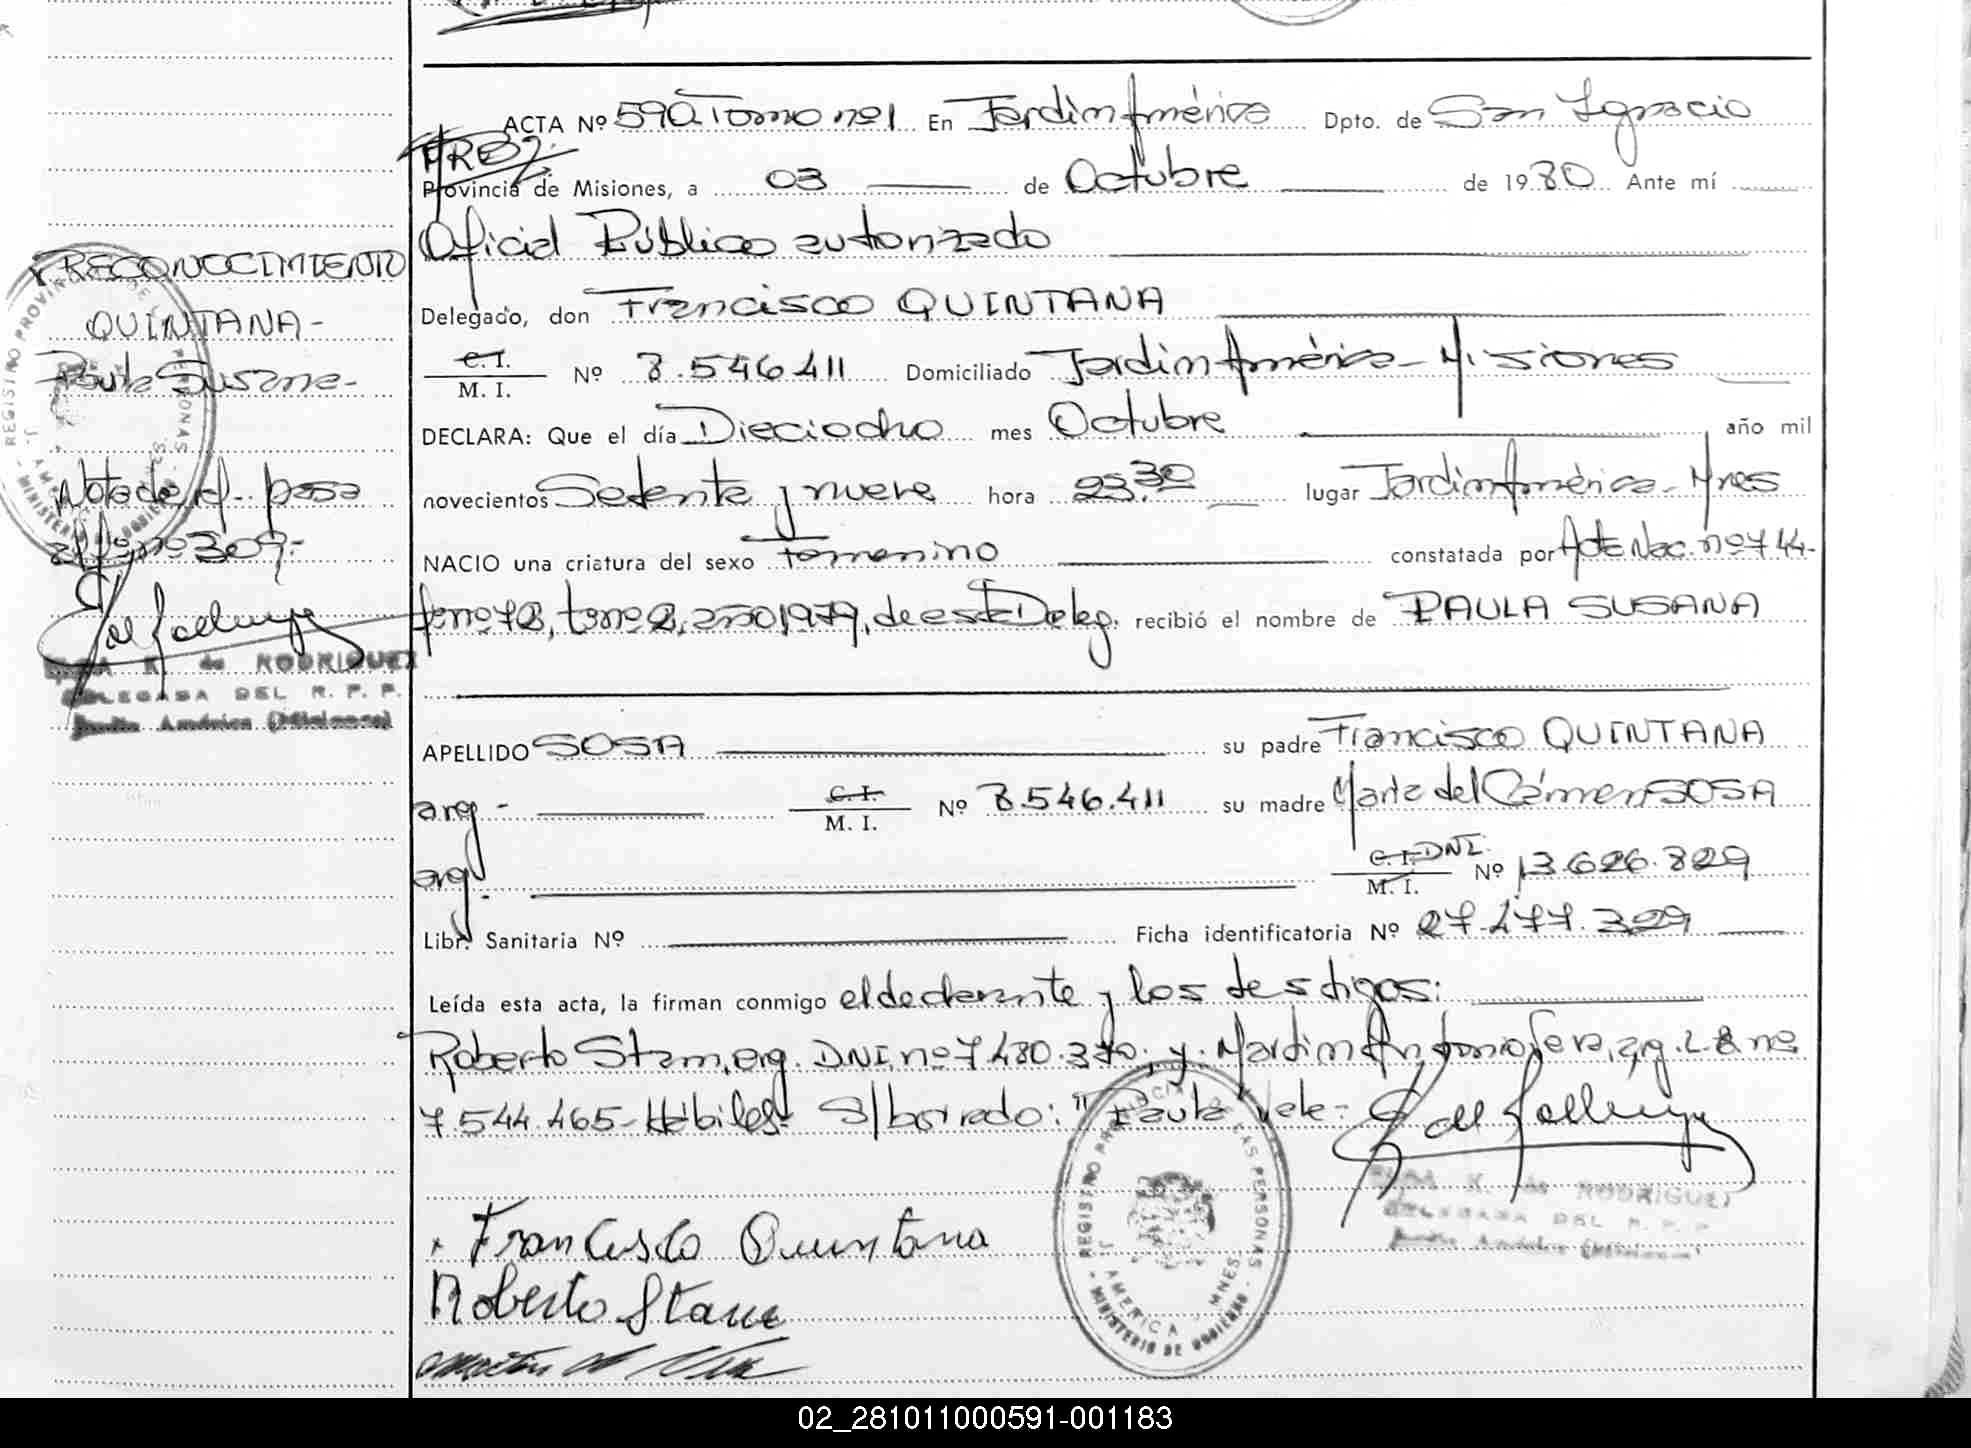 ACTA Nº 590 Tomo nº 1 En Jardín América Dpto. de San Ignacio
Provincia de Misiones, a 03 de Octubre de 1980 Ante mí
Oficial Público autorizado
Delegado, don Francisco QUINTANA
C.I. / M. I. Nº 8.546.411 Domiciliado Jardín América - Misiones
DECLARA: Que el día Dieciocho mes Octubre año mil
novecientos Setenta y nueve hora 23.30 lugar Jardín América - Mnes
NACIO una criatura del sexo Femenino constatada por Acta Nac. nº 744-
tomo 2, año 1979, de esta Deleg. recibió el nombre de PAULA SUSANA
APELLIDO SOSA su padre Francisco QUINTANA
arg - C.I. / M. I. Nº 8.546.411 su madre María del Cármen SOSA
arg. C.I. DNI. / M. I. Nº 13.626.829
Libr. Sanitaria Nº Ficha identificatoria Nº 27.477.329
Leída esta acta, la firman conmigo el declarante y los testigos:
Roberto Stam, arg. DNI. nº 7.480.370. y. Martin Antonio arg. L.E nº
7.544.465- Hábiles- S/borrado: "Paula" Vale-
Francisco Quintana
Roberto Stam
RECONOCIMIENTO
QUINTANA-
Paula Susana-
Nota de ref. pasa
al fº nº 309-
ELBA K. de RODRIGUEZ
DELEGADA DEL R. P. P.
Jardín América (Misiones)
REGISTRO PROVINCIAL DE LAS PERSONAS
J. AMERICA - MNES
- MINISTERIO DE GOBIERNO -
ELBA K. de RODRIGUEZ
DELEGADA DEL R. P. P.
Jardín América (Misiones)
02_281011000591-001183